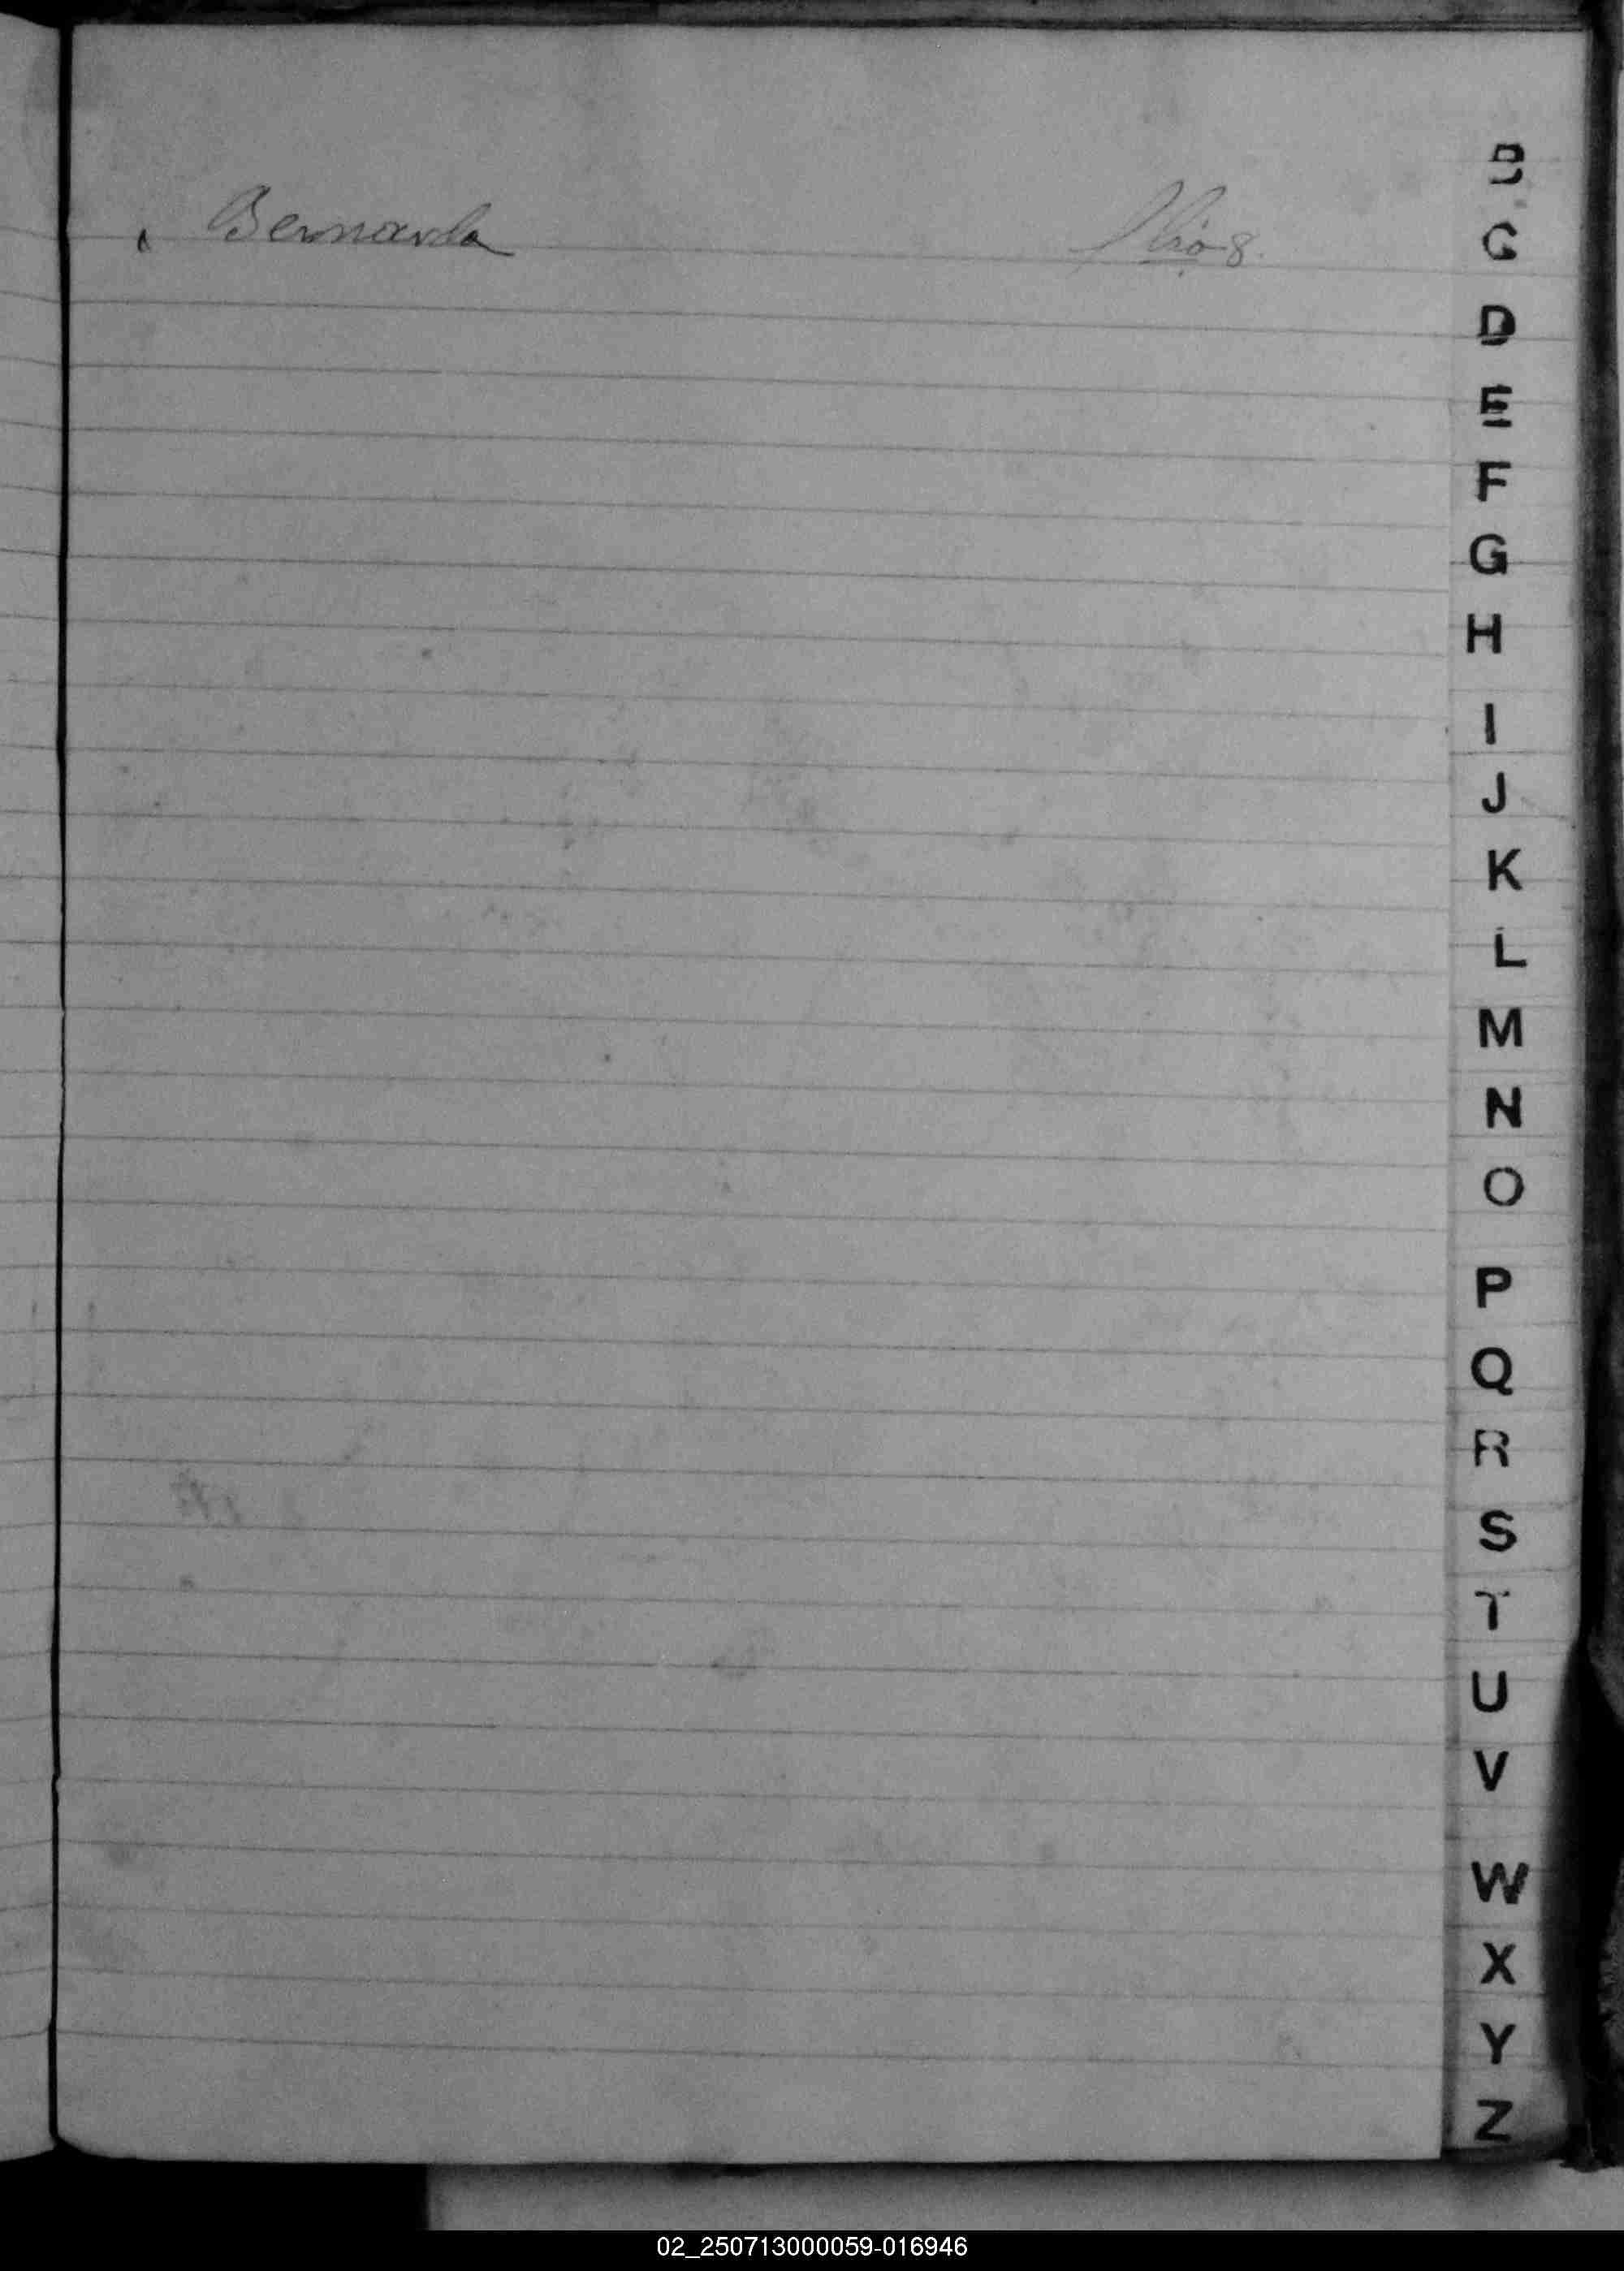 Bernarda flio 8.
B
C
D
E
F
G
H
I
J
K
L
M
N
O
P
Q
R
S
T
U
V
W
X
Y
Z
02_250713000059-016946